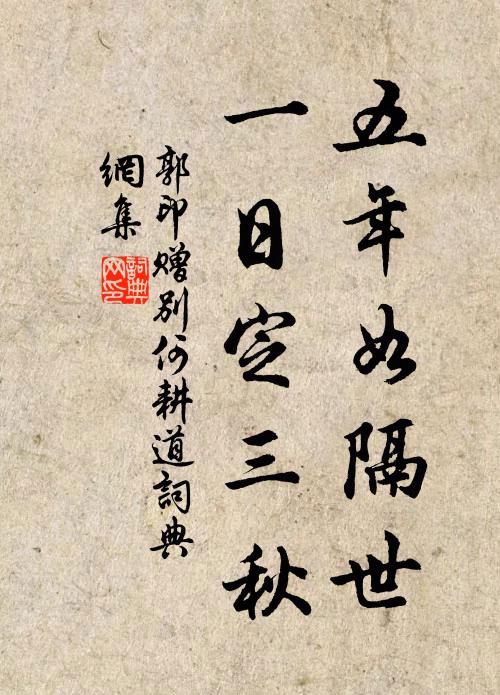 五年如隔世
一日定三秋
郭印赠别何耕道詞典
網集
詞典網印